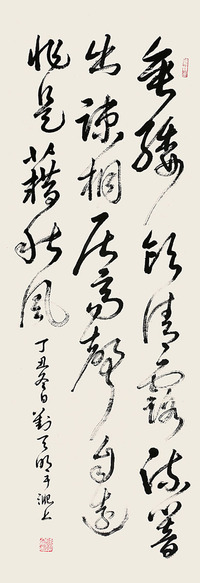 垂緌饮清露流響
出疎桐居高聲自遠
非是藉秋风
丁丑冬日劉天明于灑上